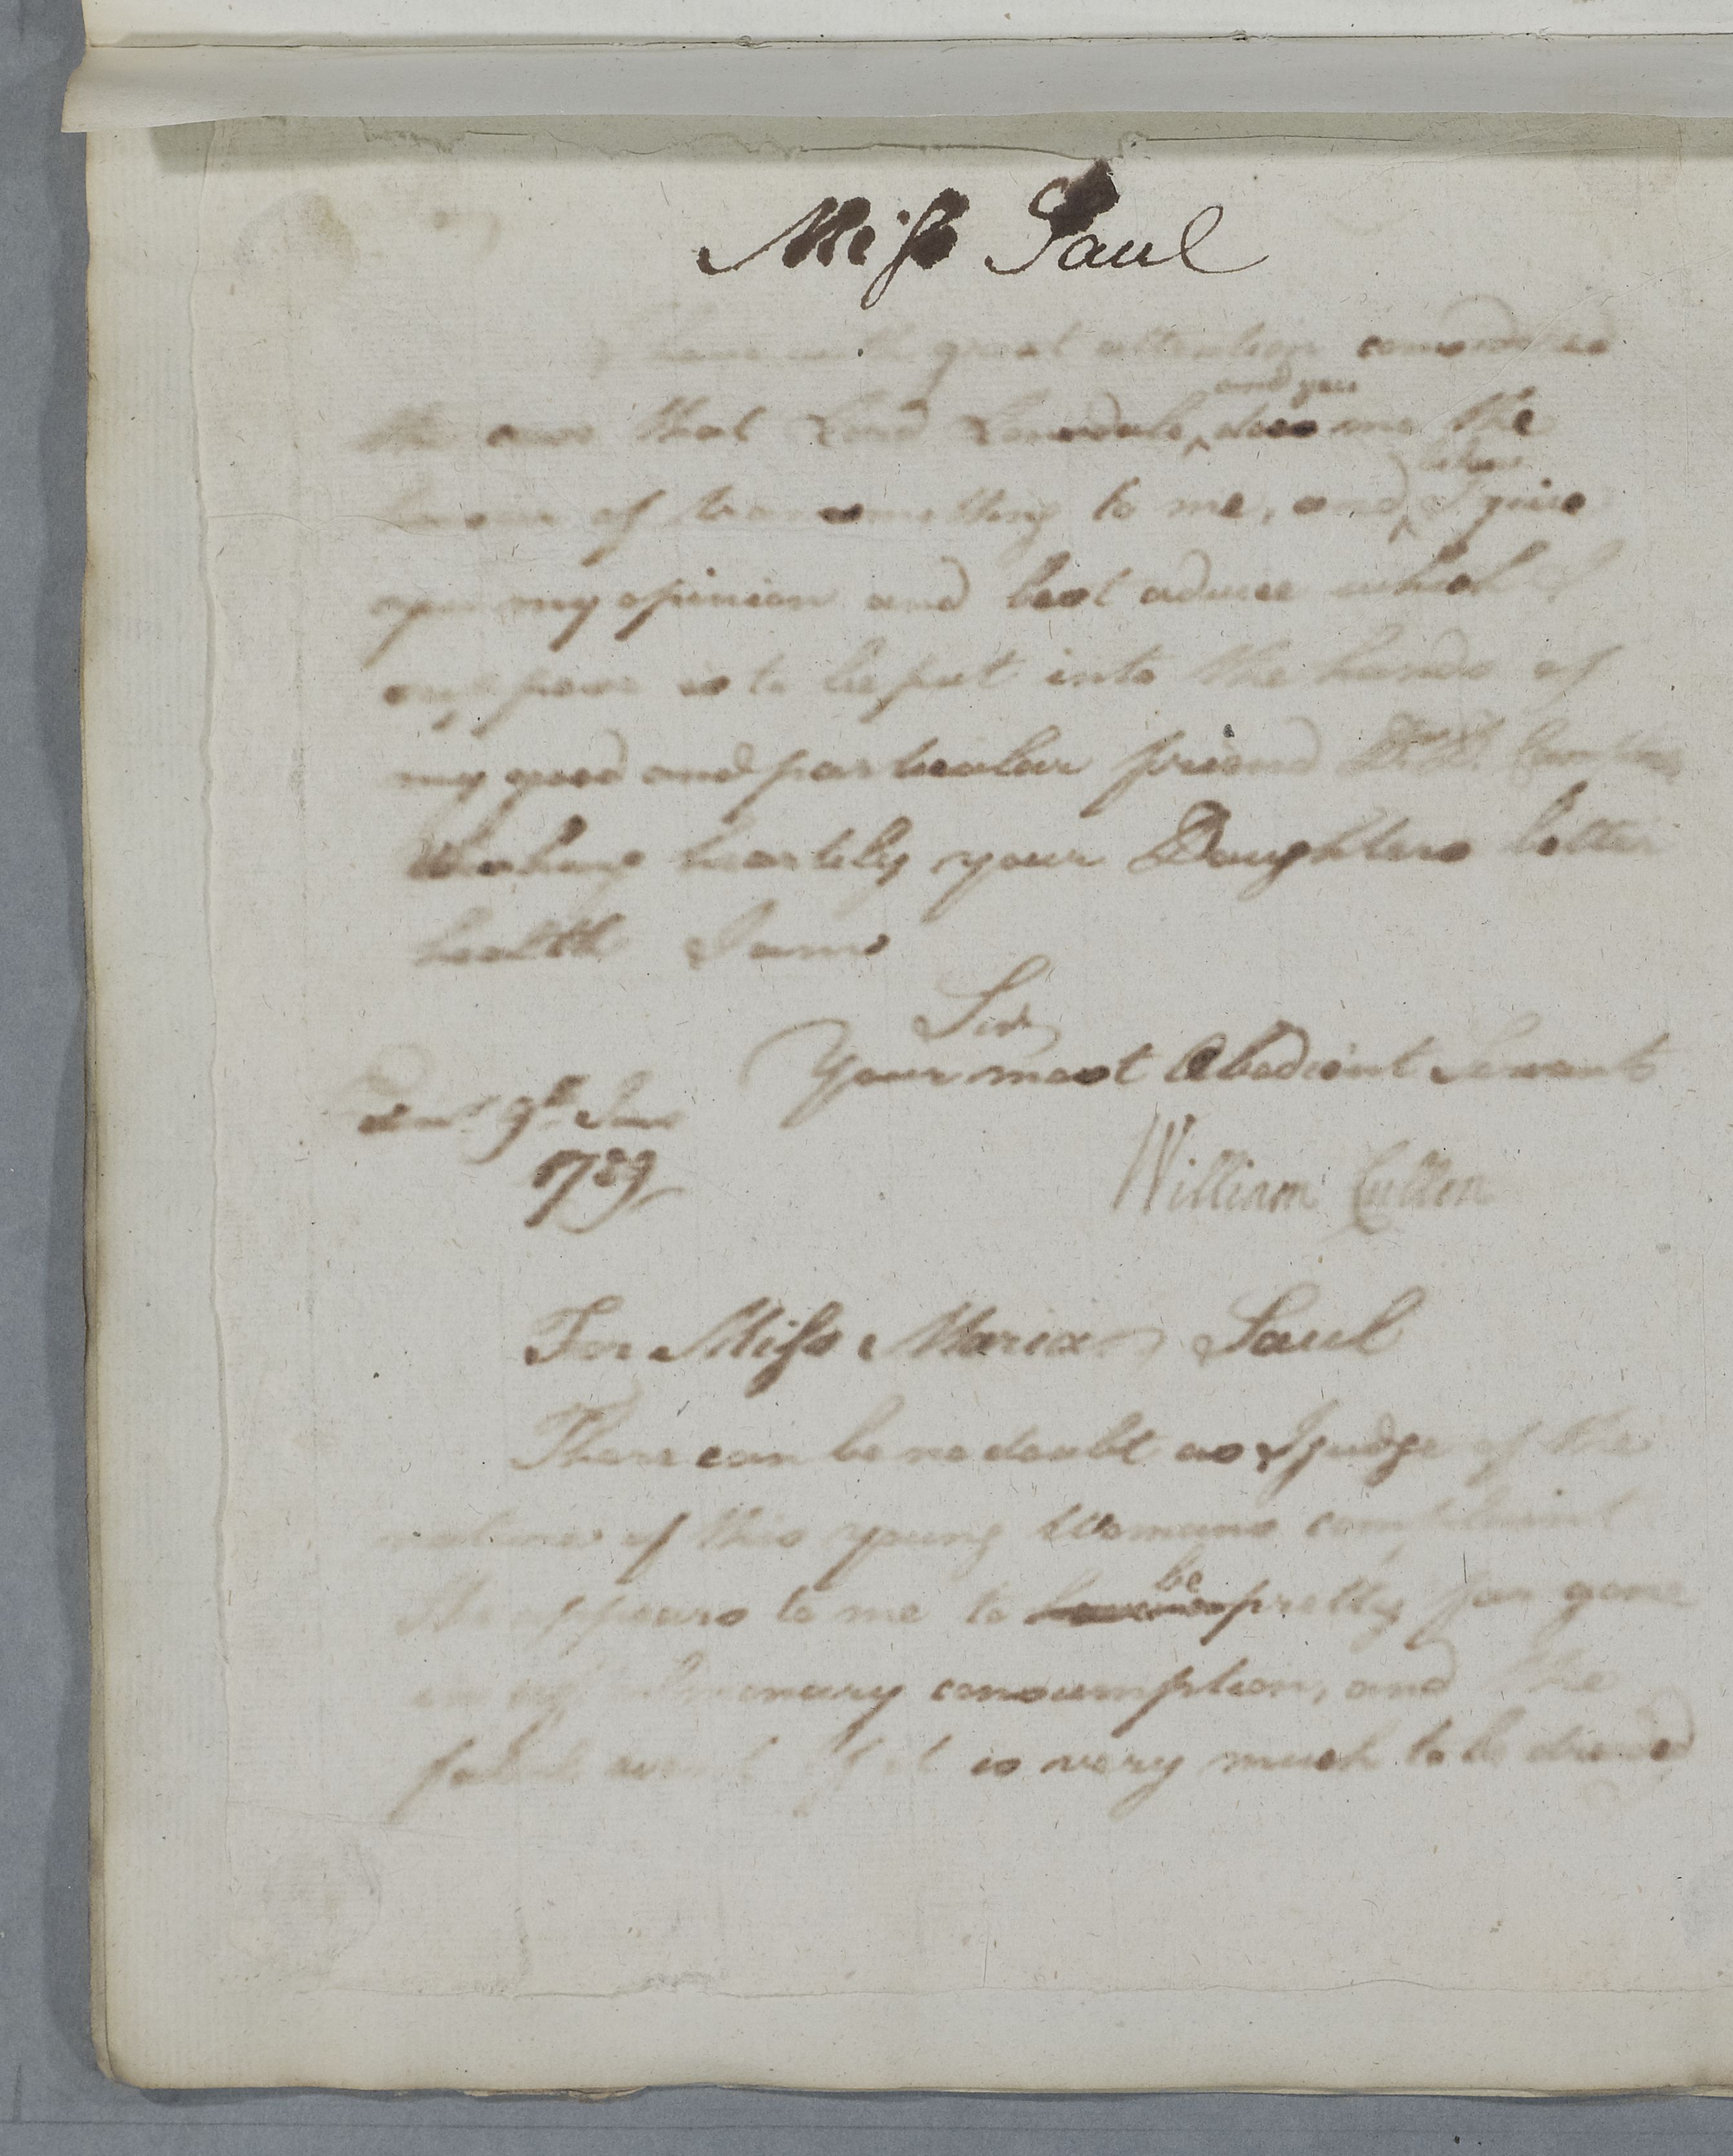 Miss Saul
I have with great attention considered
the case that Lord Lonsdale ^and you does me the
honour of transmitting to me, and ^below I give
you my opinion and best advice which I
suppose is to be put into the hands of
my good and particular friend
Wishing heartily your Daughters better
health I am
Sir
Your most Obedient Servant
9th
1789
William Cullen
For Miss Maria Saul
There can be no doubt as I judge of the
nature of this young Womans complaint
She appears to me to be pretty far gone
in pulmonary consumption, and the
fatal event of it is very much to be dreaded